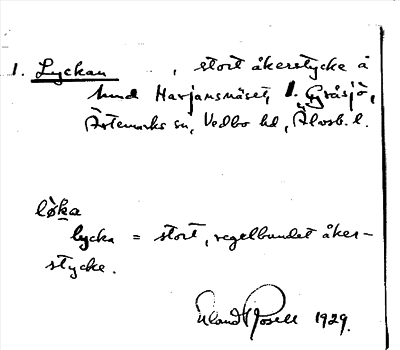 1. Lyckan , stort åkerstycke å
Marjansnäset,
Ärtemarks sn, Vedbo hd, Älvsb. l.
løka
lycka = stort, regelbundet åker-
stycke.
Erland Rosell 1929.